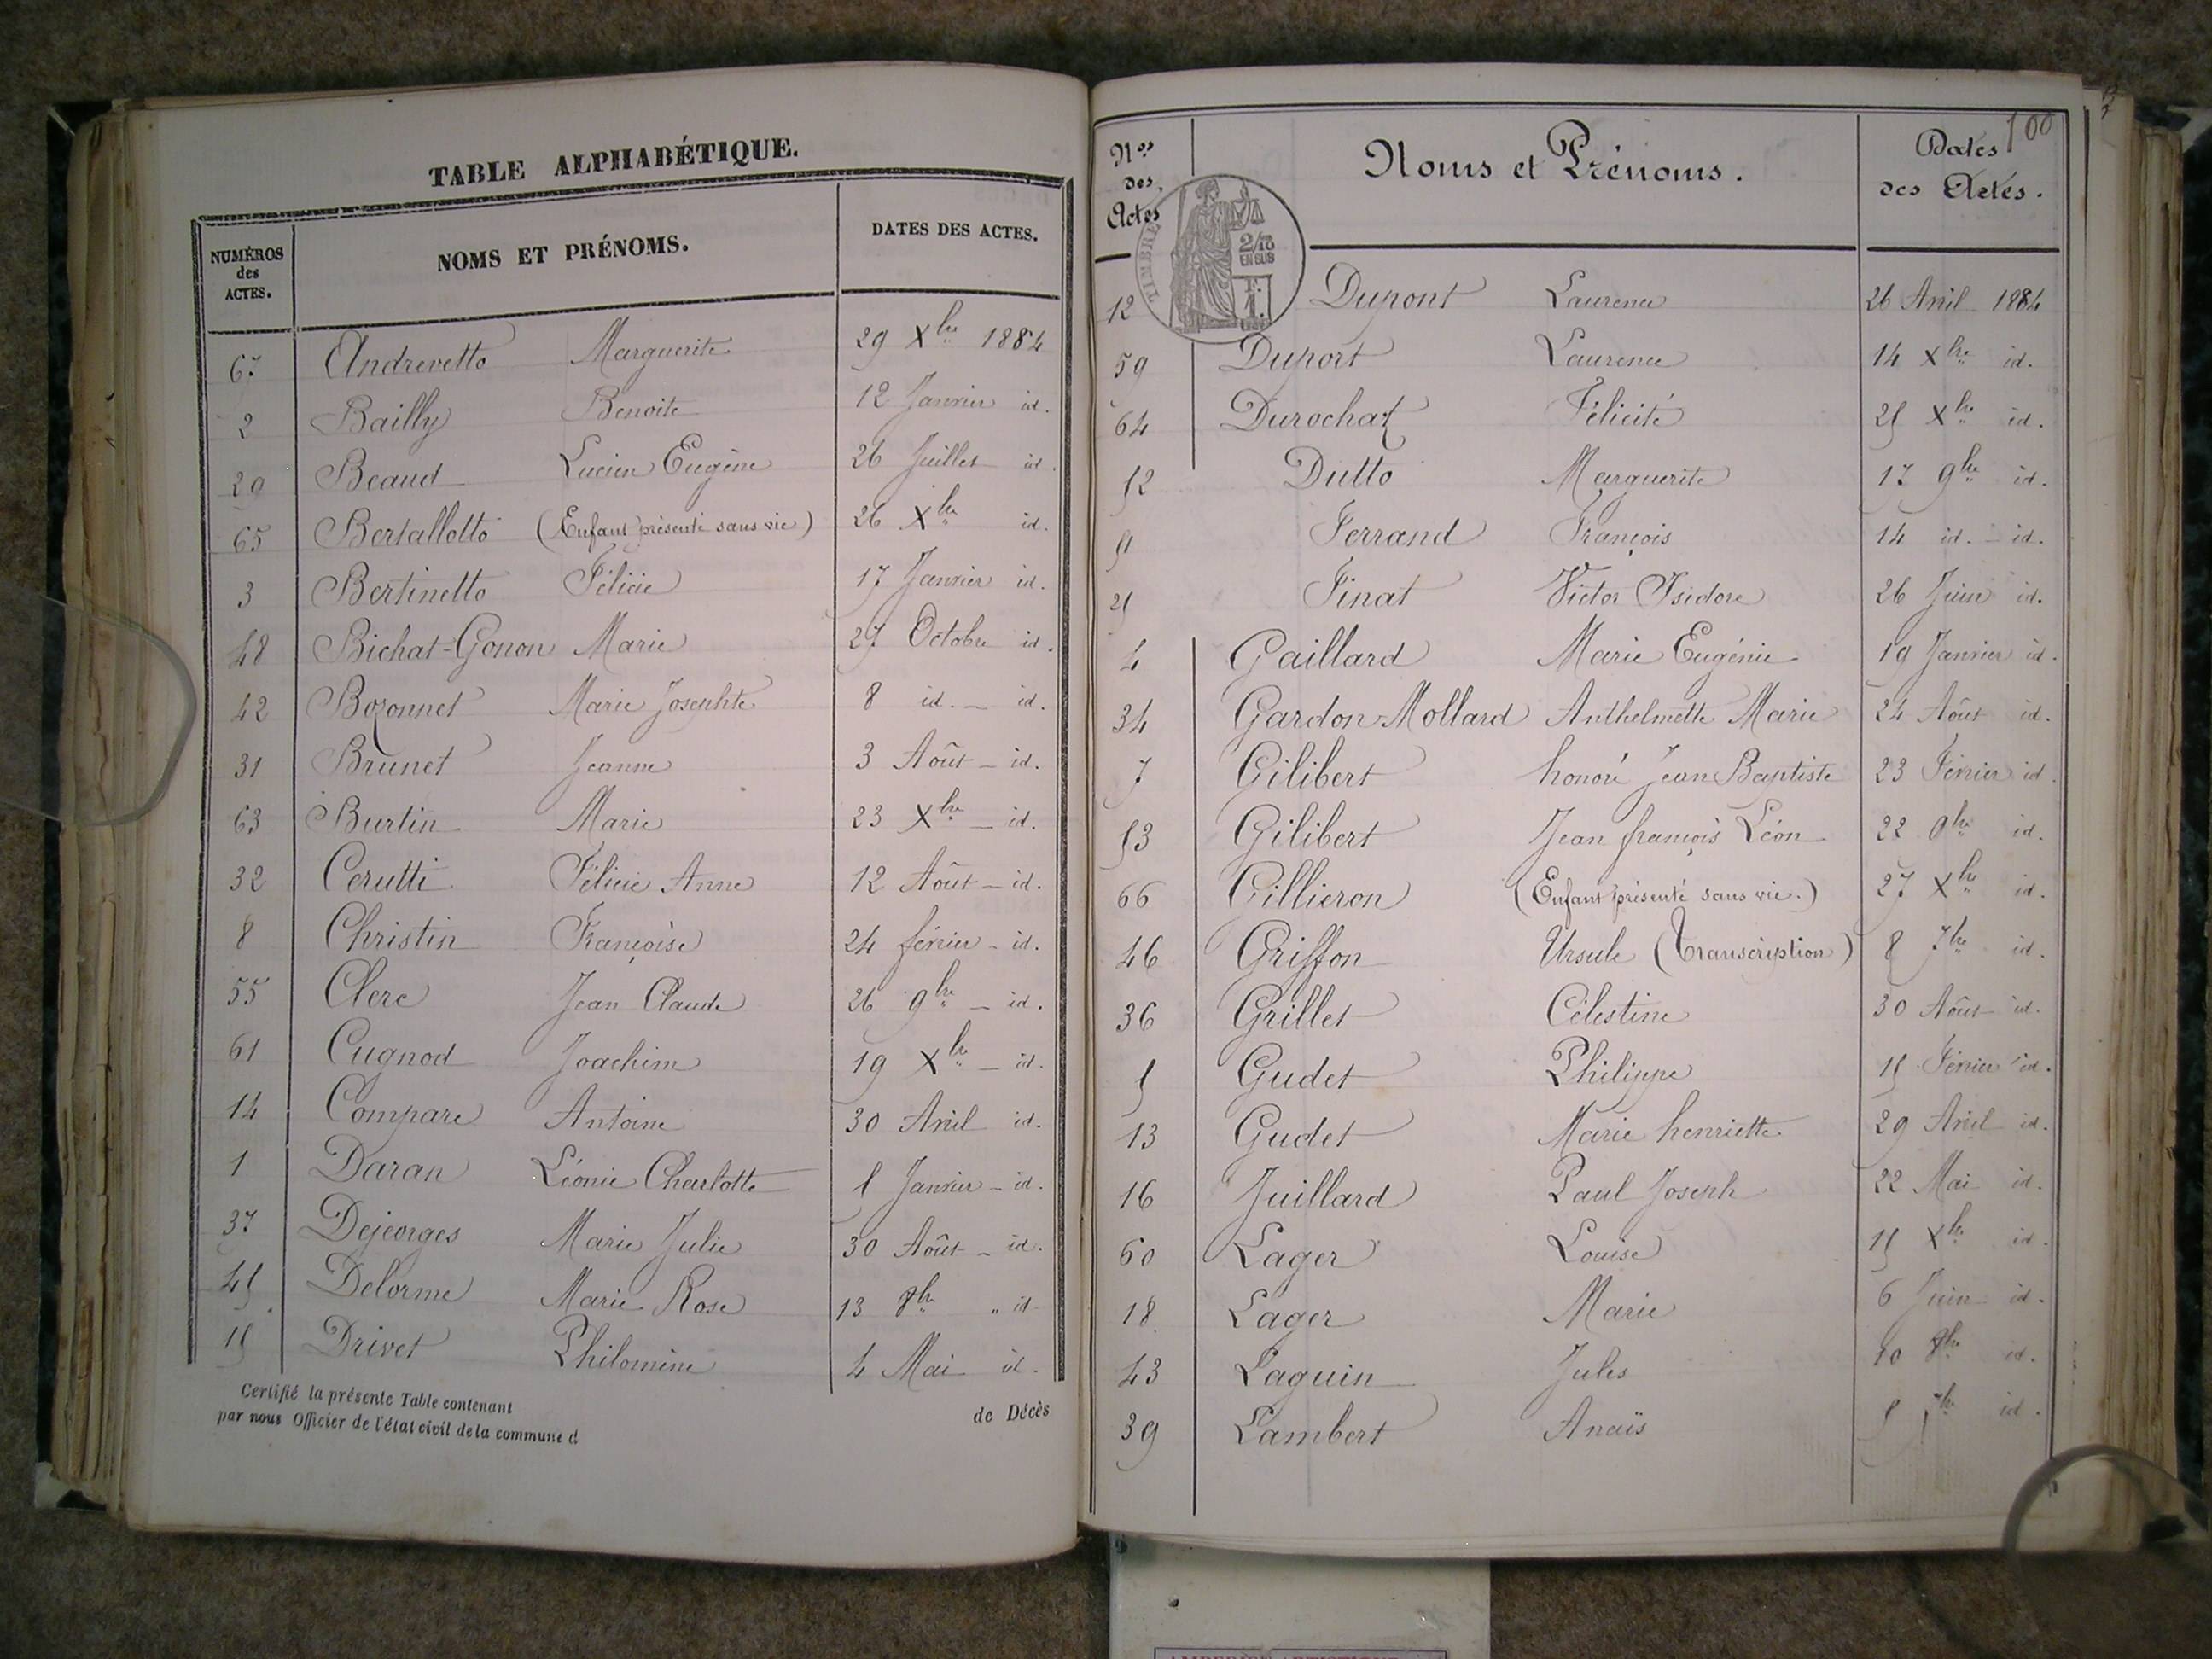 TABLE ALPHABÉTIQUE.
NUMÉROS des ACTES. NOMS ET PRÉNOMS. DATES DES ACTES.
67 Andrevetto Marguerite 29 Xbre 1884
2 Bailly Benoite 12 Janvier id.
29 Beaud Lucien Eugène 26 Juillet id.
65 Bertallotto (Enfant présenté sans vie) 26 Xbre id.
3 Bertinetto Félicie 17 Janvier id.
48 Bichat-Gonon Marie 27 Octobre id.
42 Bozonnet Marie Josephte 8 id. _ id.
31 Brunet Jeanne 3 Août _ id.
63 Burtin Marie 23 Xbre _ id.
32 Cerutti Félicie Anne 12 Août _ id.
8 Christin Françoise 24 février _ id.
55 Clerc Jean Claude 26 9bre _ id.
61 Cugnod Joachim 19 Xbre _ id.
14 Compare Antoine 30 Avril id.
1 Daran Léonie Charlotte 5 Janvier _ id.
37 Dejeorges Marie Julie 30 Août _ id.
45 Delorme Marie Rose 13 8bre " id
15 Drivet Philomène 4 Mai id.
Certifié la présente Table contenant de Décès
par nous Officier de l'état civil de la commune d
100
Nos des Actes Noms et Prénoms. Dates des Actes.
TIMBRE
2/10
EN SUS
1 F.
12 Dupont Laurence 26 Avril 1884
59 Duport Laurence 14 Xbre id.
64 Durochat Félicité 25 Xbre id.
52 Dutto Marguerite 17 9bre id.
51 Ferrand François 14 id. _ id.
25 Finat Victor Isidore 26 Juin id.
4 Gaillard Marie Eugénie 19 Janvier id.
34 Gardon-Mollard Anthelmette Marie 24 Août id.
7 Gilibert honoré Jean Baptiste 23 Février id.
53 Gilibert Jean françois Léon 22 9bre id.
66 Gillieron (Enfant présenté sans vie.) 27 Xbre id.
46 Griffon Ursule (Transcription) 8 7bre id.
36 Grillet Célestine 30 Août id.
5 Gudet Philippe 15 Février id.
13 Gudet Marie henriette 29 Avril id.
16 Juillard Paul Joseph 22 Mai id.
60 Lager Louise 15 Xbre id.
18 Lager Marie 6 Juin id.
43 Laguin Jules 10 8bre id.
39 Lambert Anaïs 5 7bre id.